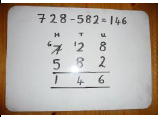 728-582=146
H T U
6 7 12 8
5 8 2
1 4 6